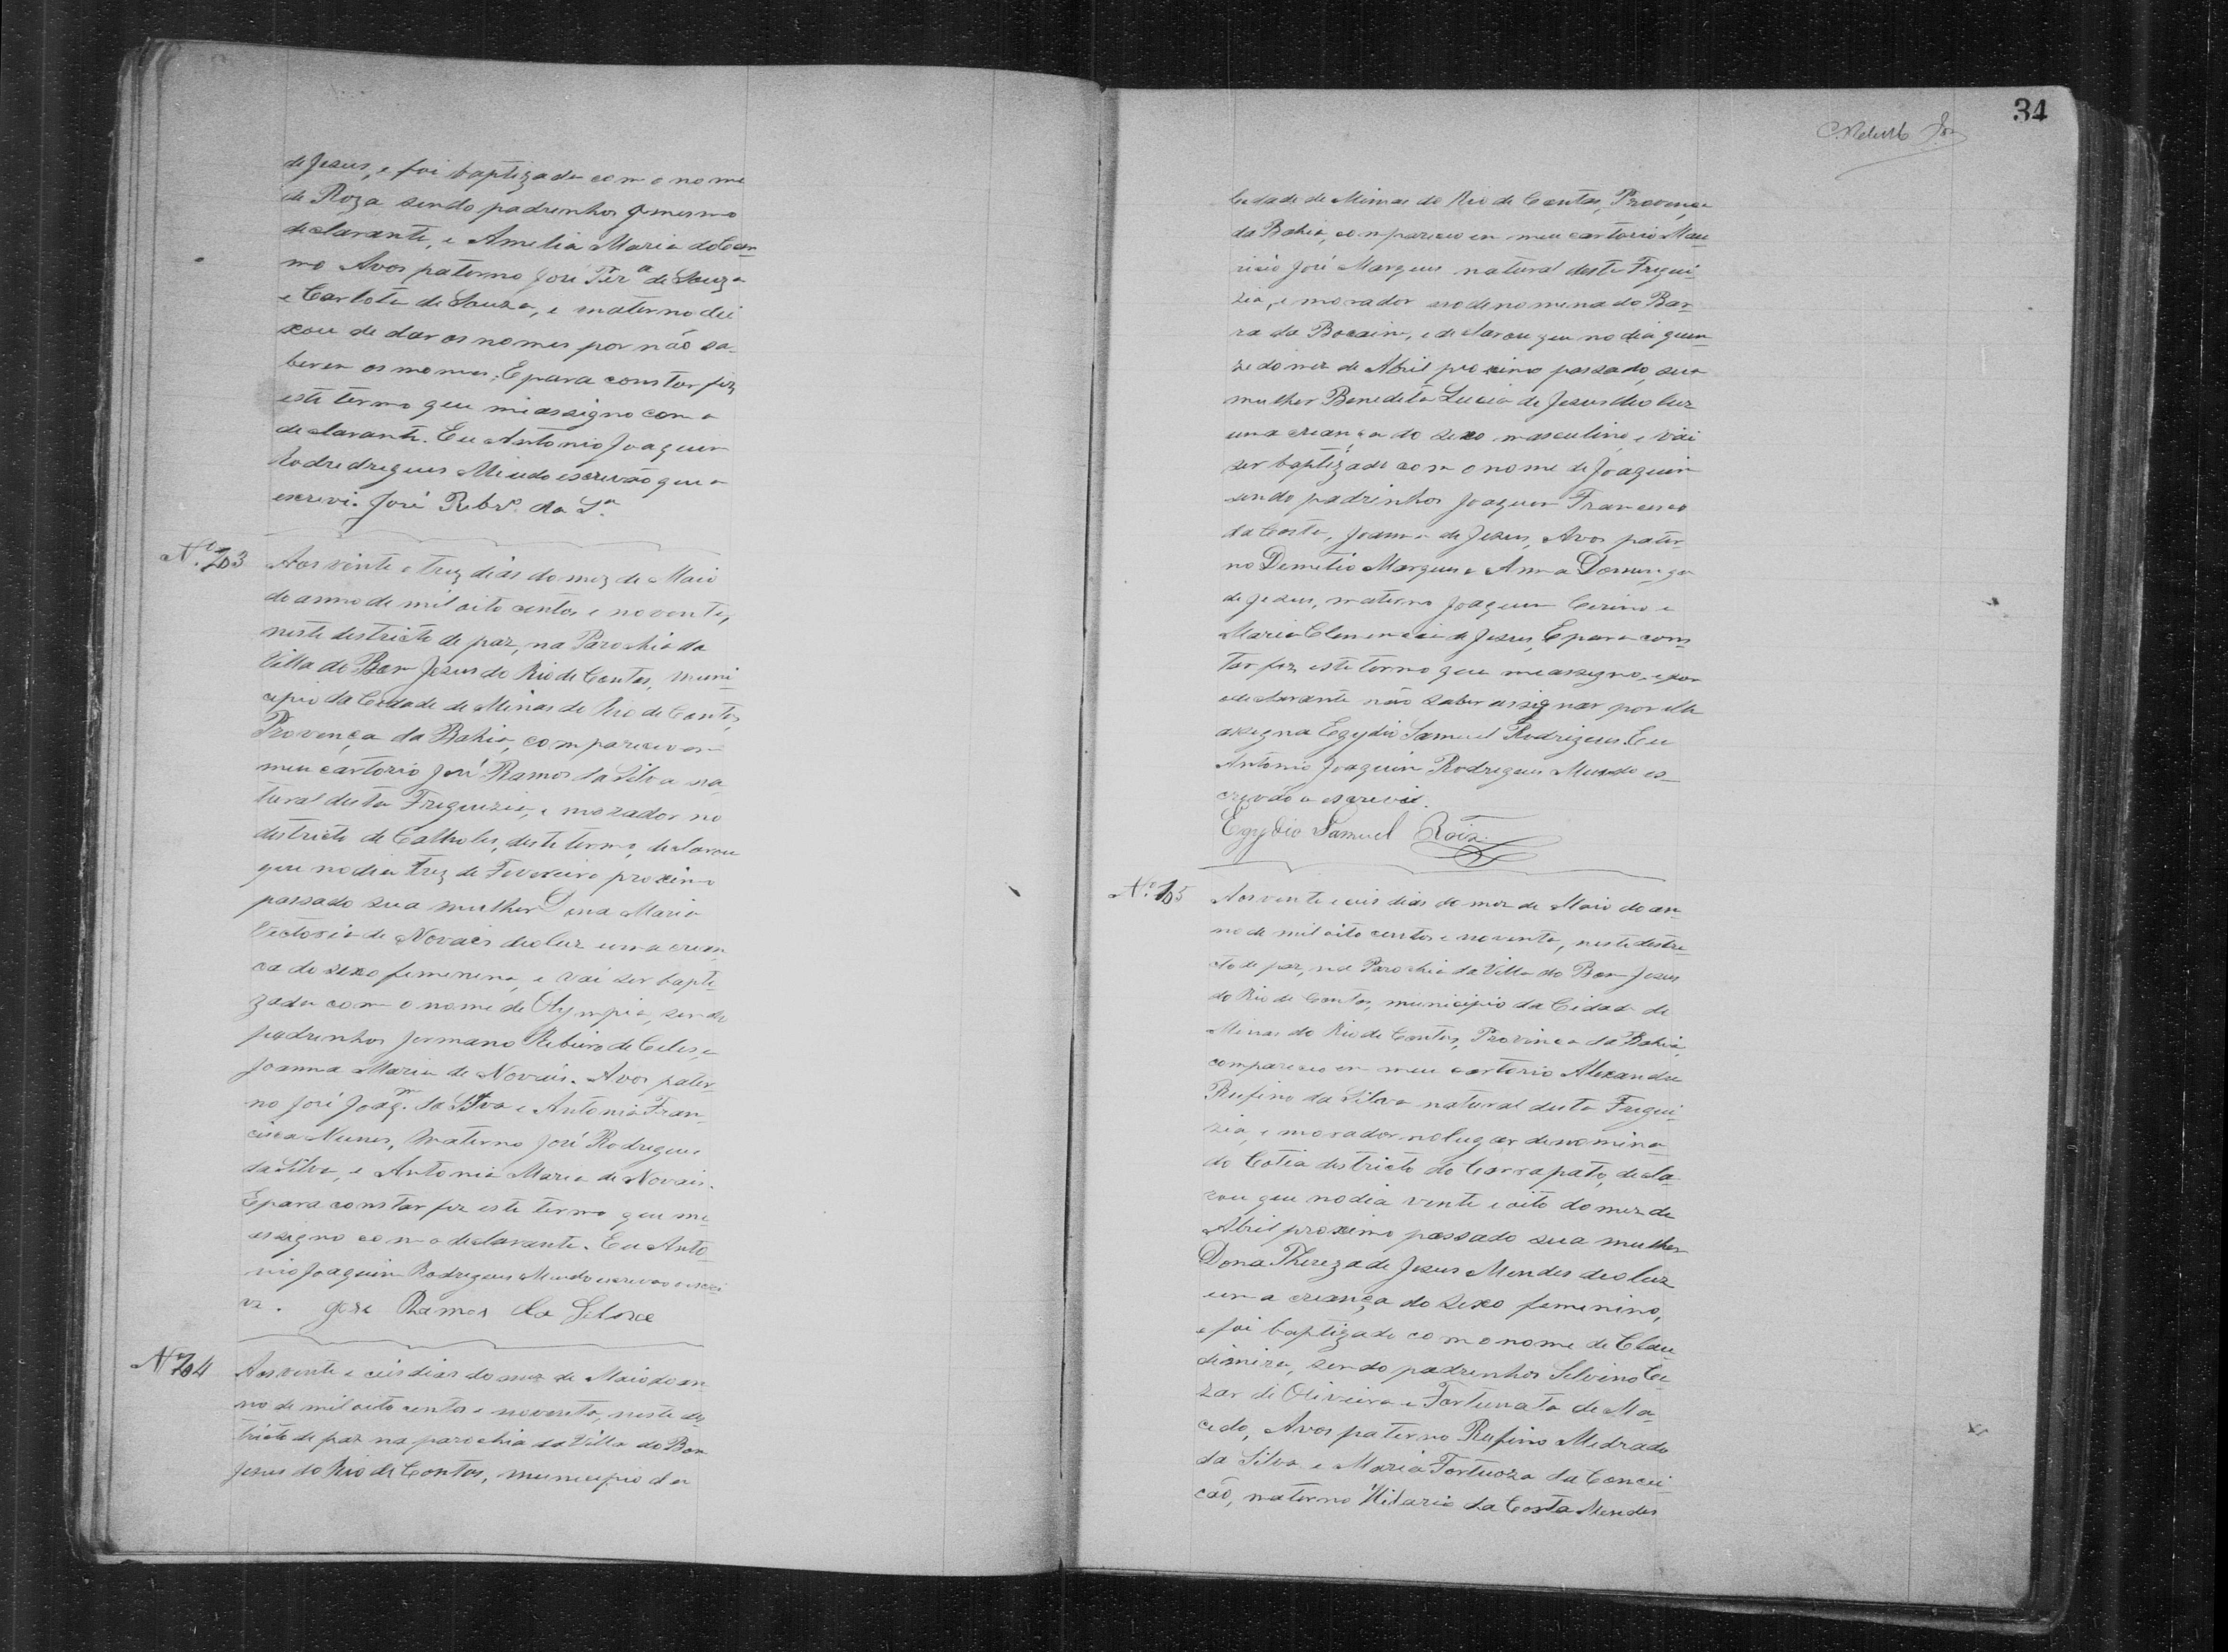 de Jesus, e foi baptizada com o nome
de Roza sendo padrinhos o mesmo
declarante, e Amelia Maria do Car-
mo Avos paterno José Per.ª de Souza
e Carlota de Souza, e materno dei
xou de dar os nomes por não sa-
berem os mesmos, E para constar fiz
este termo que me assigno com o
declarante. Eu Antonio Joaquim
Rodredregues Miudo escrevão que o
escrevi. José Rebr.º da S.ª
Nº. 703
Aos vinte e trez dias do mez de Maio
do anno de mil oito centos e noventa,
neste destricto de paz, na Parochia da
Villa do Bom Jesus do Rio de Contas, muni-
cipio da Cidade de Minas do Rio de Contas,
Provença da Bahia, compareceu em
meu cartorio José Ramos da Silva na
tural desta Freguezia, e morador no
destricto de Catholes, deste termo, declarou
que no dia trez de Fevereiro proximo
passado sua mulher Dona Maria
Victoria de Novaes deo luz uma crean
ca do sexo femenino, e vai ser bapti
zada com o nome de Olympia, sendo
padrinhos Jermano Ribeiro de Celes, e
Joanna Maria de Novais. Avos pater-
no José Joaq.m da Silva e Antonia Fran-
cisca Nunes, Materno José Rodrigues
da Silva, e Antonia Maria de Novais.
E para constar fiz este termo que me
assigno com o declarante. Eu Anto
nio Joaquim Rodrigues Miudo escrevão escre
vi. José Ramos da Silva
Nº 704
Aos vente e ceis dias do mez de Maio do an
no de mil oito centos e noventa, neste des
tricto de paz na parochia da Villa do Bom
Jesus do Rio de Contas, municipio da
34
Cidade de Minas do Rio de Contas, Provença
da Bahia, compareceu em meu cartorio Mau
ricio José Marques natural desta Fregue
zia, e morador no denomenado Bar-
ra da Bocaina, e declarou que no dia quin
ze do mez de Abril proximo passado, sua
mulher Benedita Lucia de Jesus deo luz
uma creança do sexo masculino e vai
ser baptizado com o nome de Joaquim
sendo padrinhos Joaquim Francisco
da Costa, Joanna de Jesus, Avos pater-
no Demetio Marques e Anna Dominga
de Jesus, materno Joaquim Cirino e
Maria Clemencia de Jesus, E para cons-
tar fiz este termo que me assigno, e por
o declarante não saber assignar por elle
assegna Egydio Samuel Rodrigues. Eu
Antonio Joaquim Rodrigues Miudo es-
crevão o escrevi.
Egydio Samuel Roiz.
Nº. 705
Aos vente e ceis dias do mez de Maio do an-
no de mil oito centos e noventa, neste destri-
cto de paz, na Parochia da Villa do Bom Jesus
do Rio de Contas, municipio da Cidade de
Minas do Rio de Contas, Provinca da Bahia,
compareceu em meu cartorio Alexandre
Rufino da Silva natural desta Fregue-
zia, e morador no lugar denomina-
do Cotia destricto do Carrapato, decla-
rou que no dia vente e oito do mez de
Abril proximo passado sua mulher
Dona Thereza de Jesus Mendes deo luz
uma creança do sexo femenino,
e foi baptizado com o nome de Clau-
dimira, sendo padrenhos Silvino Ce-
zar de Oliveira e Fortunata de Ma-
cedo, Avos paterno Rufino Medrado
da Silva e Maria Fortuoza da Concei-
cão, materno Hilario da Costa Mendes